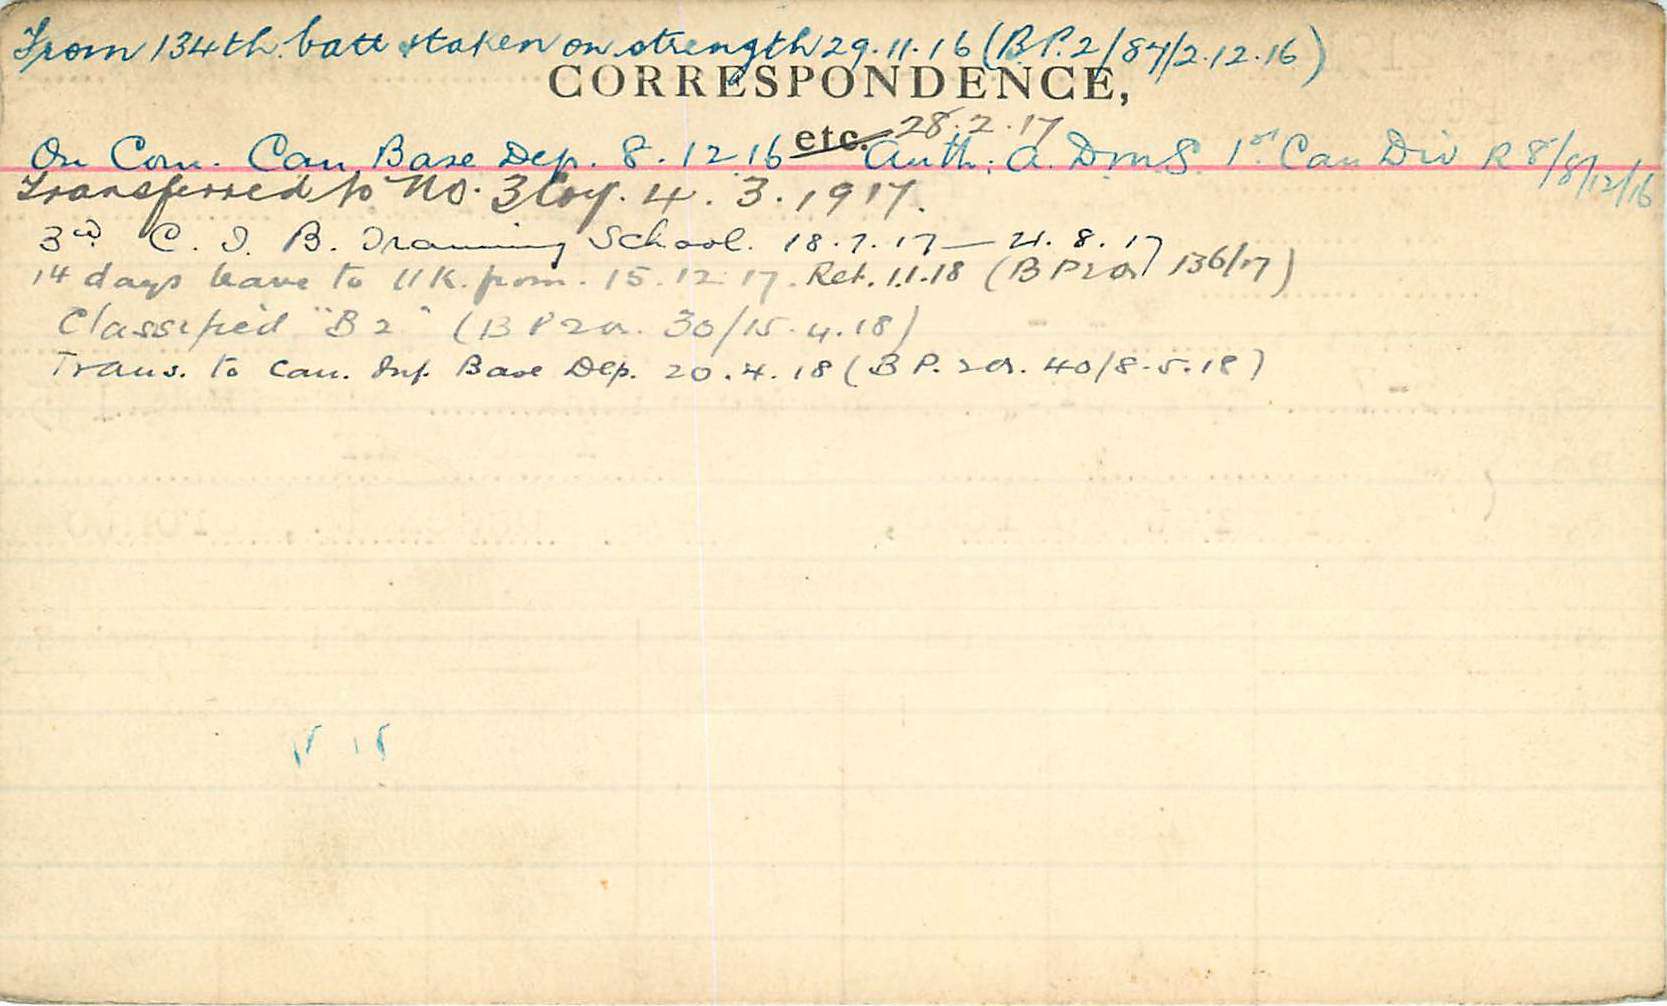 From 134th. batt & taken on strength 29.11.16 (B.P.2/87/2.12.16)
CORRESPONDENCE,
etc. 28.2.17
On Com. Can Base Dep. 8.12 16 Auth: A. DmS 1st Can Div R 8/8/12/16
Transferred to No. 3 Coy. 4.3.1917.
3rd C. I. B. Training School. 18.7.17 — 21.8.17
14 days leave to UK. from. 15.12.17. Ret. 1.1.18 (B P2or 136/17)
Classified "B2" (B P2or. 30/15.4.18)
Trans. to Can. Inf. Base Dep. 20.4.18 (B P. 2or. 40/8.5.18)